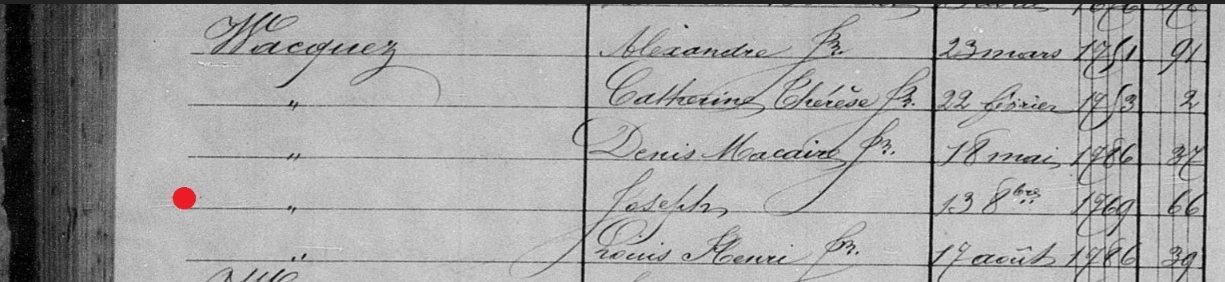 Wacquez Alexandre fr. 23 mars 1751 91
" Catherine Thérèse fr. 22 février 1753 2
" Denis Macaire fr. 18 mai 1786 37
" Joseph 13 8bre 1769 66
" Louis Henri fr. 17 août 1786 39